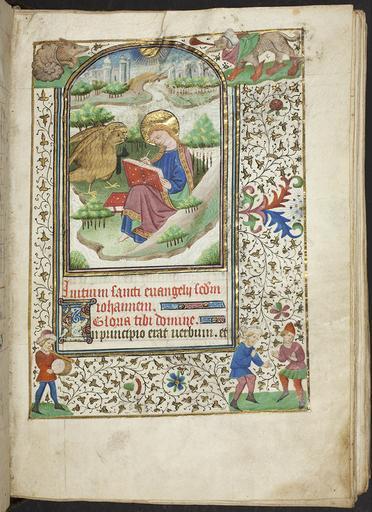 Inicium sancti euangelij scd'm
iohannem.
Gloria tibi domine.
In principio erat uerbum. et